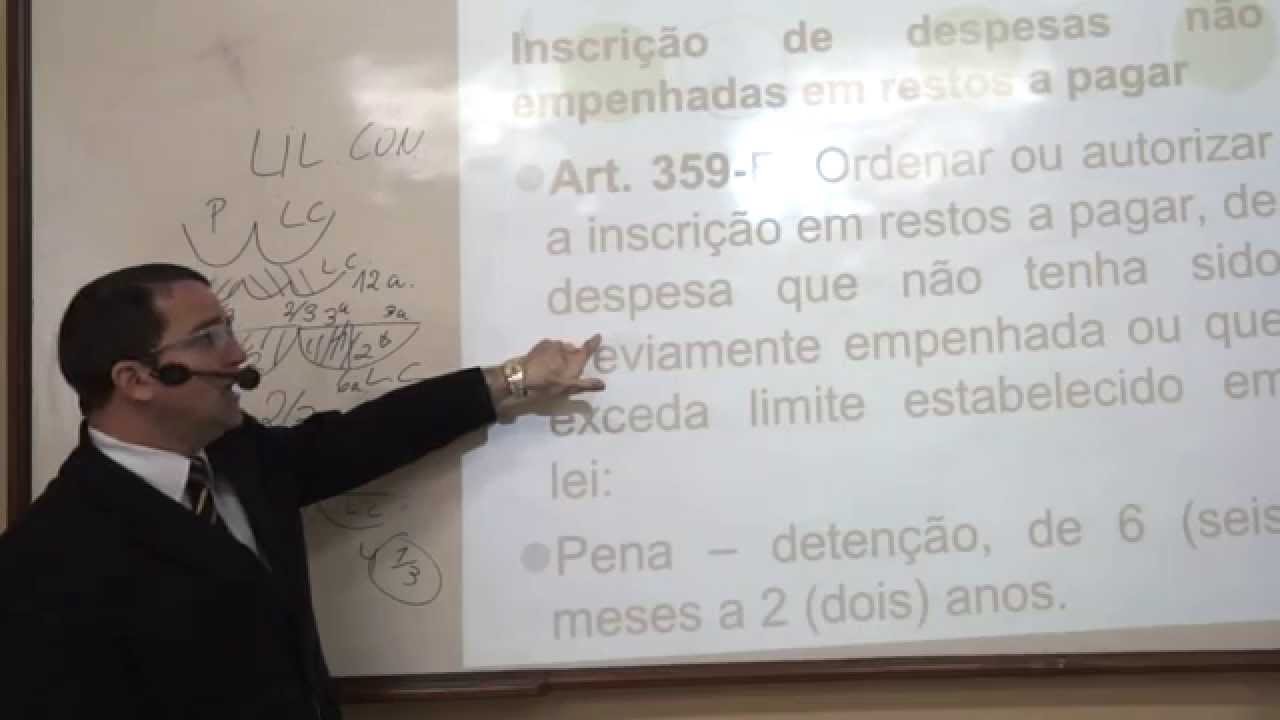 Inscrição de despesas não
empenhadas em restos a pagar
Art. 359- Ordenar ou autorizar
a inscrição em restos a pagar, de
despesa que não tenha sido
eviamente empenhada ou que
exceda limite estabelecido em
lei:
Pena – detenção, de 6 (seis
meses a 2 (dois) anos.
LIL CON
P LC
LC 12 a.
2/3 3ª
6a L.C
2/3
1/3